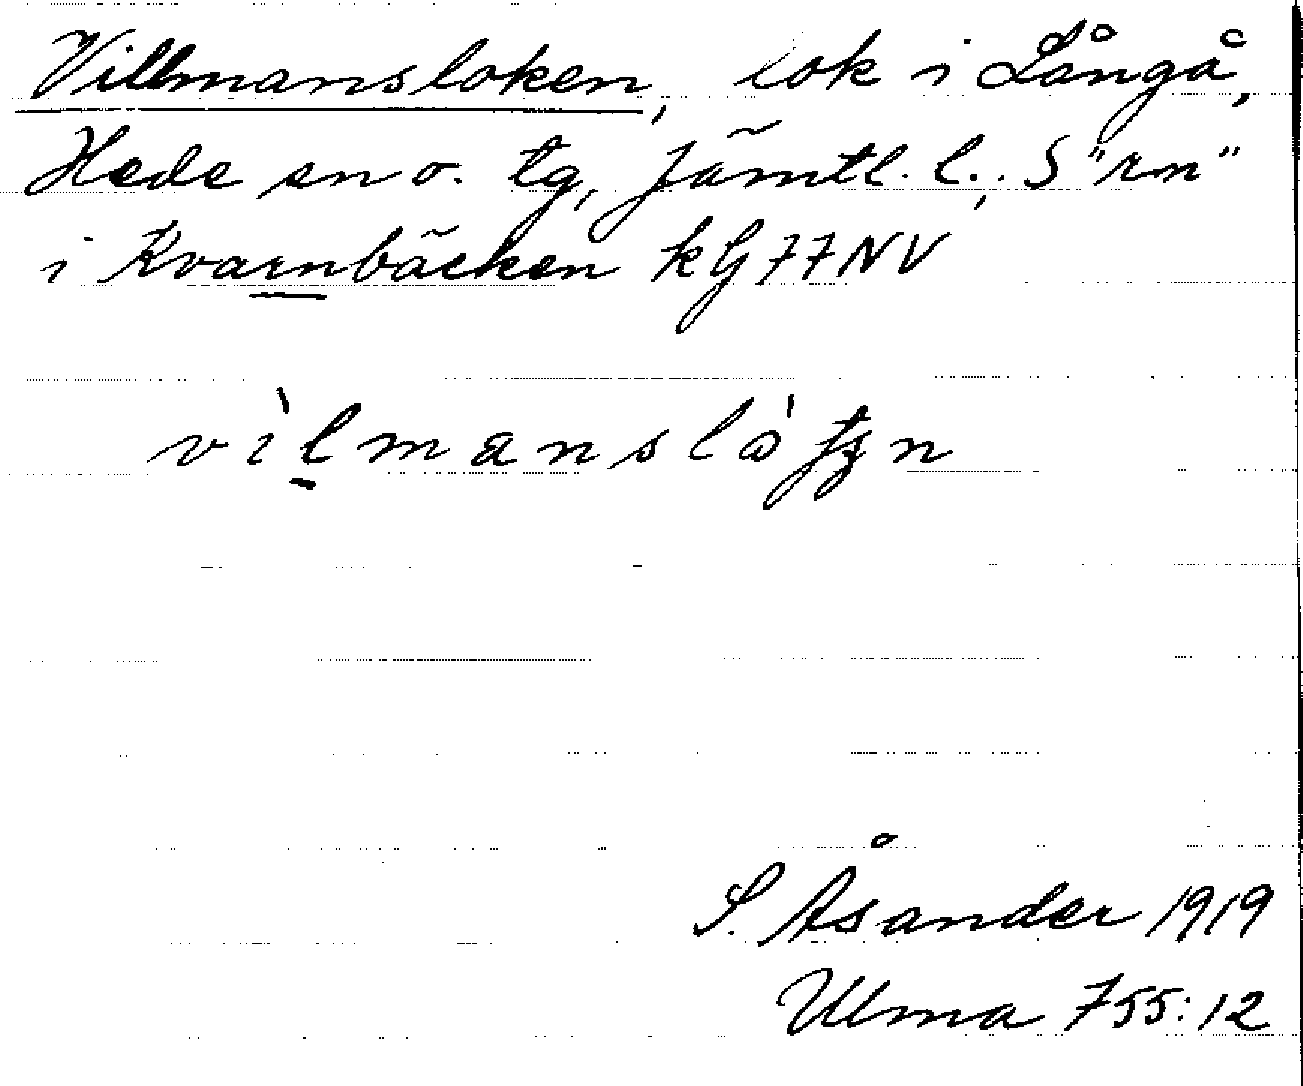 Villmansloken, lok i Långå,
Hede sn o. tg, Jämtl. l., S "rn"
i Kvarnbäcken kG77NV
S. Åsander 1919
Ulma 755:12